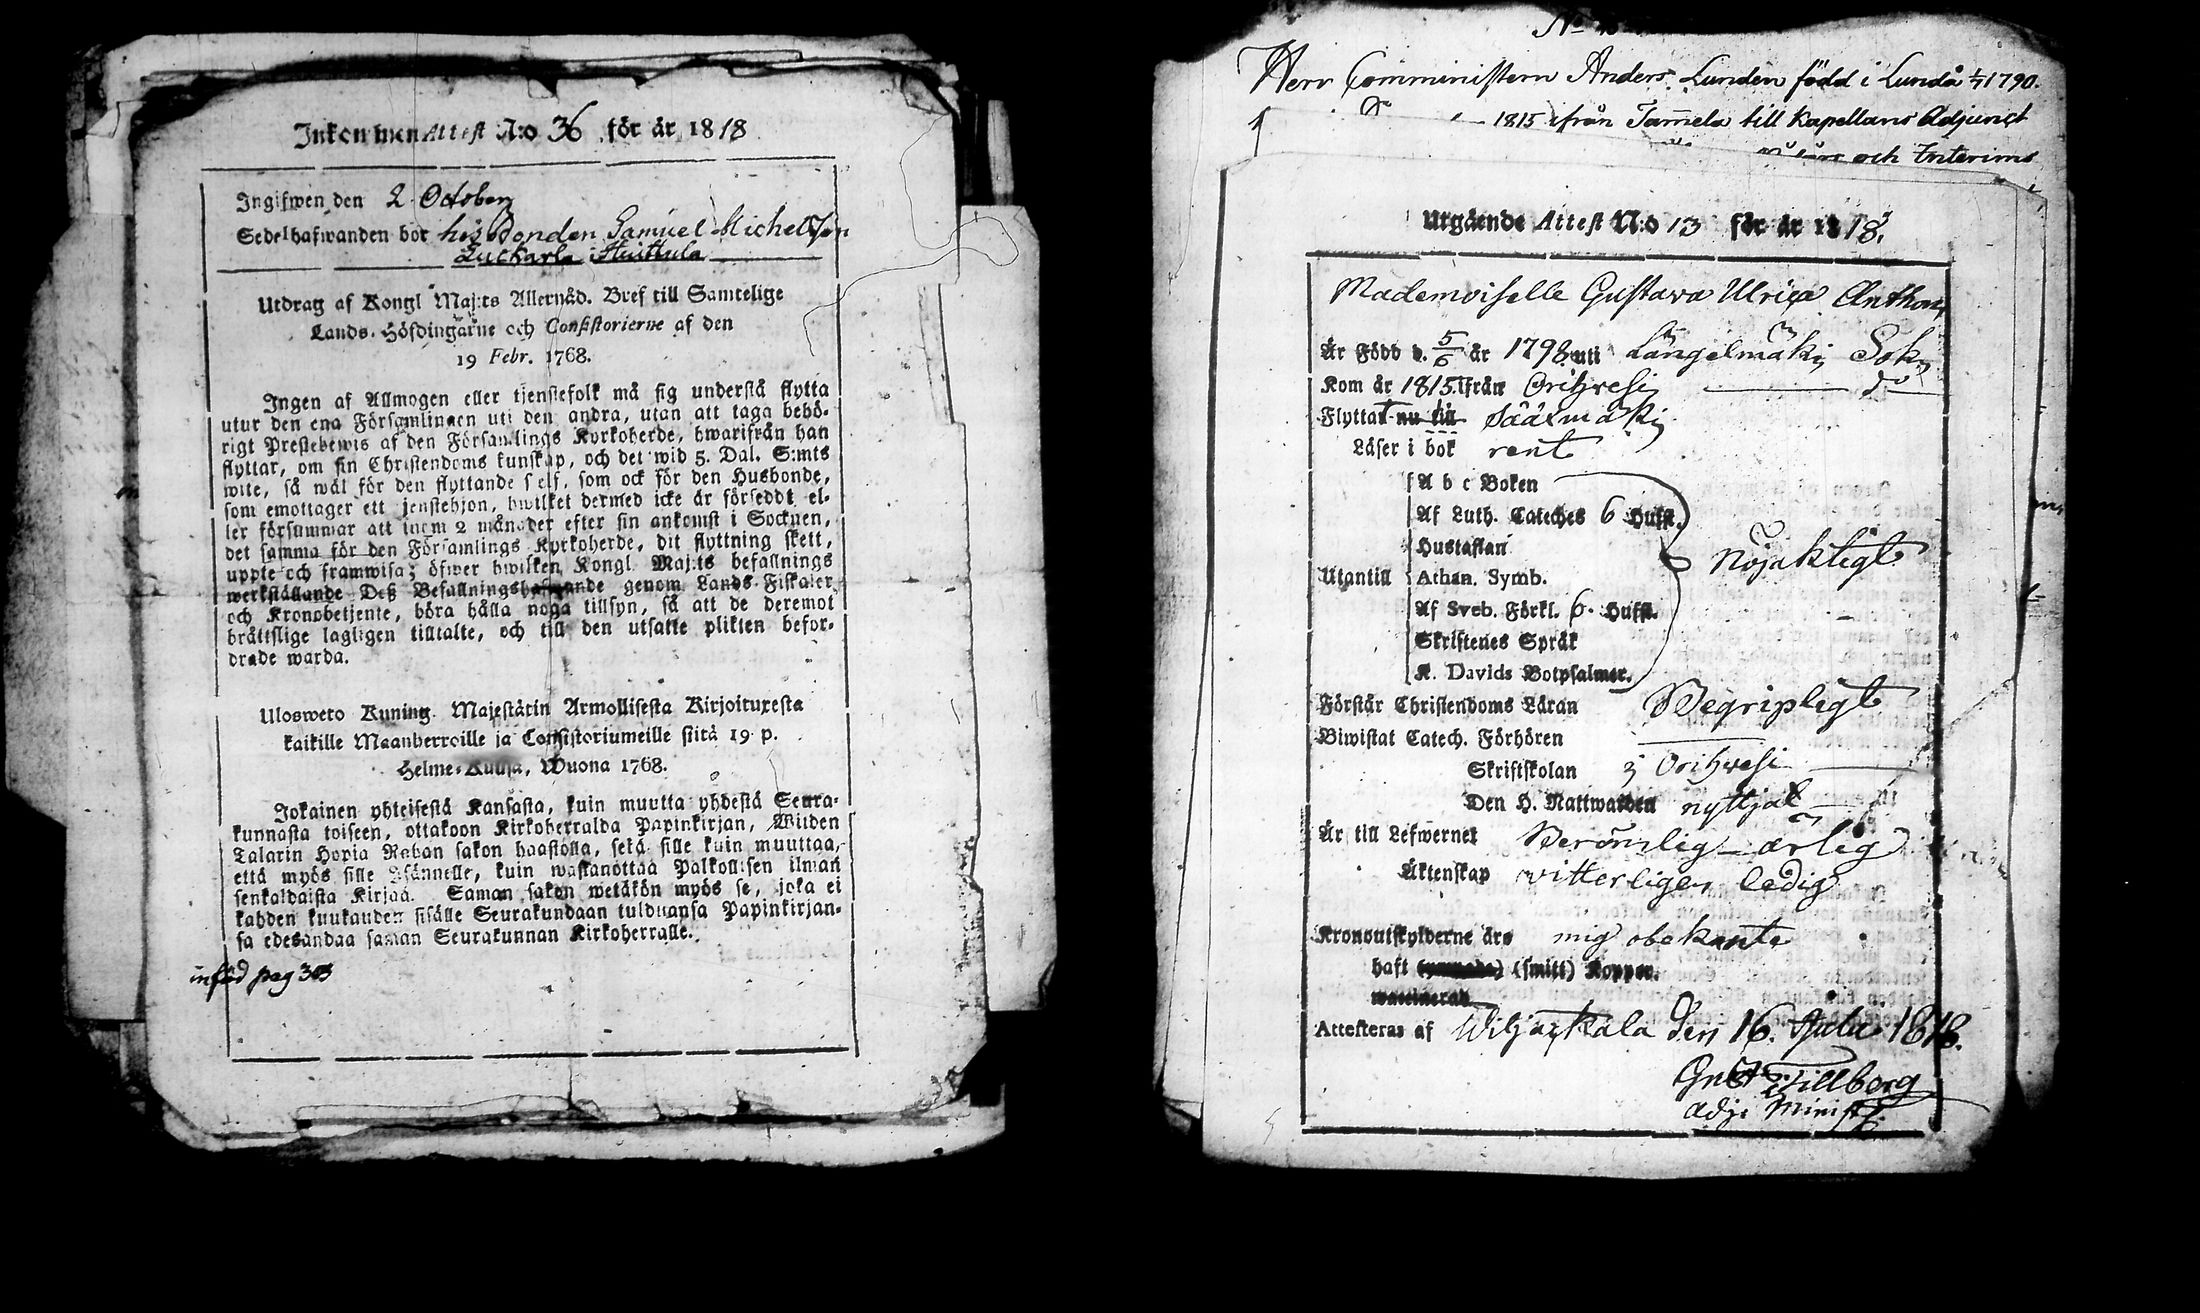 Inkommen Attest N:o 36 för år 1818
Ingifwen den 2 October
Sedelhafwanden bor hos Bonden Samuel Michelsson
Luckarla Huittula
Utdrag af Kongl Maj:ts Allernåd. Bref till Samtelige
Lands-Höfdingarne och Consistorierne af den
19 Febr. 1768.
Ingen af Allmogen eller tjenstefolk må sig understå flytta
utur den ena Församlingen uti den andra, utan att taga behö-
rigt Prestebewis af den Församlings Kyrkoherde, hwarifrån han
flyttar, om sin Christendoms kunskap, och det wid 5. Dal. S:mts
wite, så wäl för den flyttande self, som ock för den Husbonde,
som emottager ett tjenstehjon, hwilket dermed icke är försedt el-
ler försummar att inom 2 månader efter sin ankomst i Socknen,
det samma för den Församlings Kyrkoherde, dit flyttning skett,
uppte och framwisa; öfwer hwilken Kongl Maj:ts befallnings
werkställande Deß Befallningshafwande genom Lands-Fiskaler
och Kronobetjente, böra hålla noga tillsyn, så att de deremot
bråttslige lagligen tilltalte, och till den utsatte plikten befor-
drade warda.
Ulosweto Kuning. Majestätin Armollisesta Kirjoituxesta
kaikille Maanherroille ja Consistoriumeille siitä 19 p.
Helme-Kuusa, Wuona 1768.
Jokainen yhteisestä Kansasta, kuin muutta yhdestä Seura-
kunnasta toiseen, ottakoon Kirkoherralda Papinkirjan, Wiiden
Talarin Hopia Rahan sakon haastolla, sekä sille kuin muuttaa,
että myös sille Isännelle, kuin wastanottaa Palkollisen ilman
senkaldaista Kirjaa. Saman sakon wetäkön myös se, joka ei
kahden kuukauden sisälle Seurakundaan tulduansa Papinkirjan-
sa edesandaa saman Seurakunnan Kirkoherralle.
införd pag 303
No
Herr Comministern Anders Lunden född i Lundå 1/4 1790.
1815 ifrån Tammela till Kapellans Adjunct
och Interims
Utgående Attest N:o 13 för år 1818.
Mademoiselle Gustava Ulrica Anthon
Är Född d. 5/6 år 1798 uti Längelmäki Sokn
Kom år 1815 ifrån Orihvesi do
Flyttat nu till Sääxmäki
Läser i bok rent
A b c Boken
Af Luth. Cateches 6 Hufst.
Hustaflan
Utantill Athan. Symb. Nöjaktigt
Af Sveb. Förkl. 6. Hufst.
Skriftenes Språk
K. Davids Botpsalmer.
Förstår Christendoms Läran Begripligt
Biwistat Catech. Förhören
Skriftskolan i Orihvesi
Den H. Nattwarden nyttjat
Är till Lefwernet Berömlig ärlig
Äktenskap vitterligen ledig
Kronoutskylderne äro mig obekante
haft (smitt) Koppor.
waccinerad
Attesteras af Wiljaxkala den 16. Julii 1818.
Gust. Lillberg
adj. Minist.